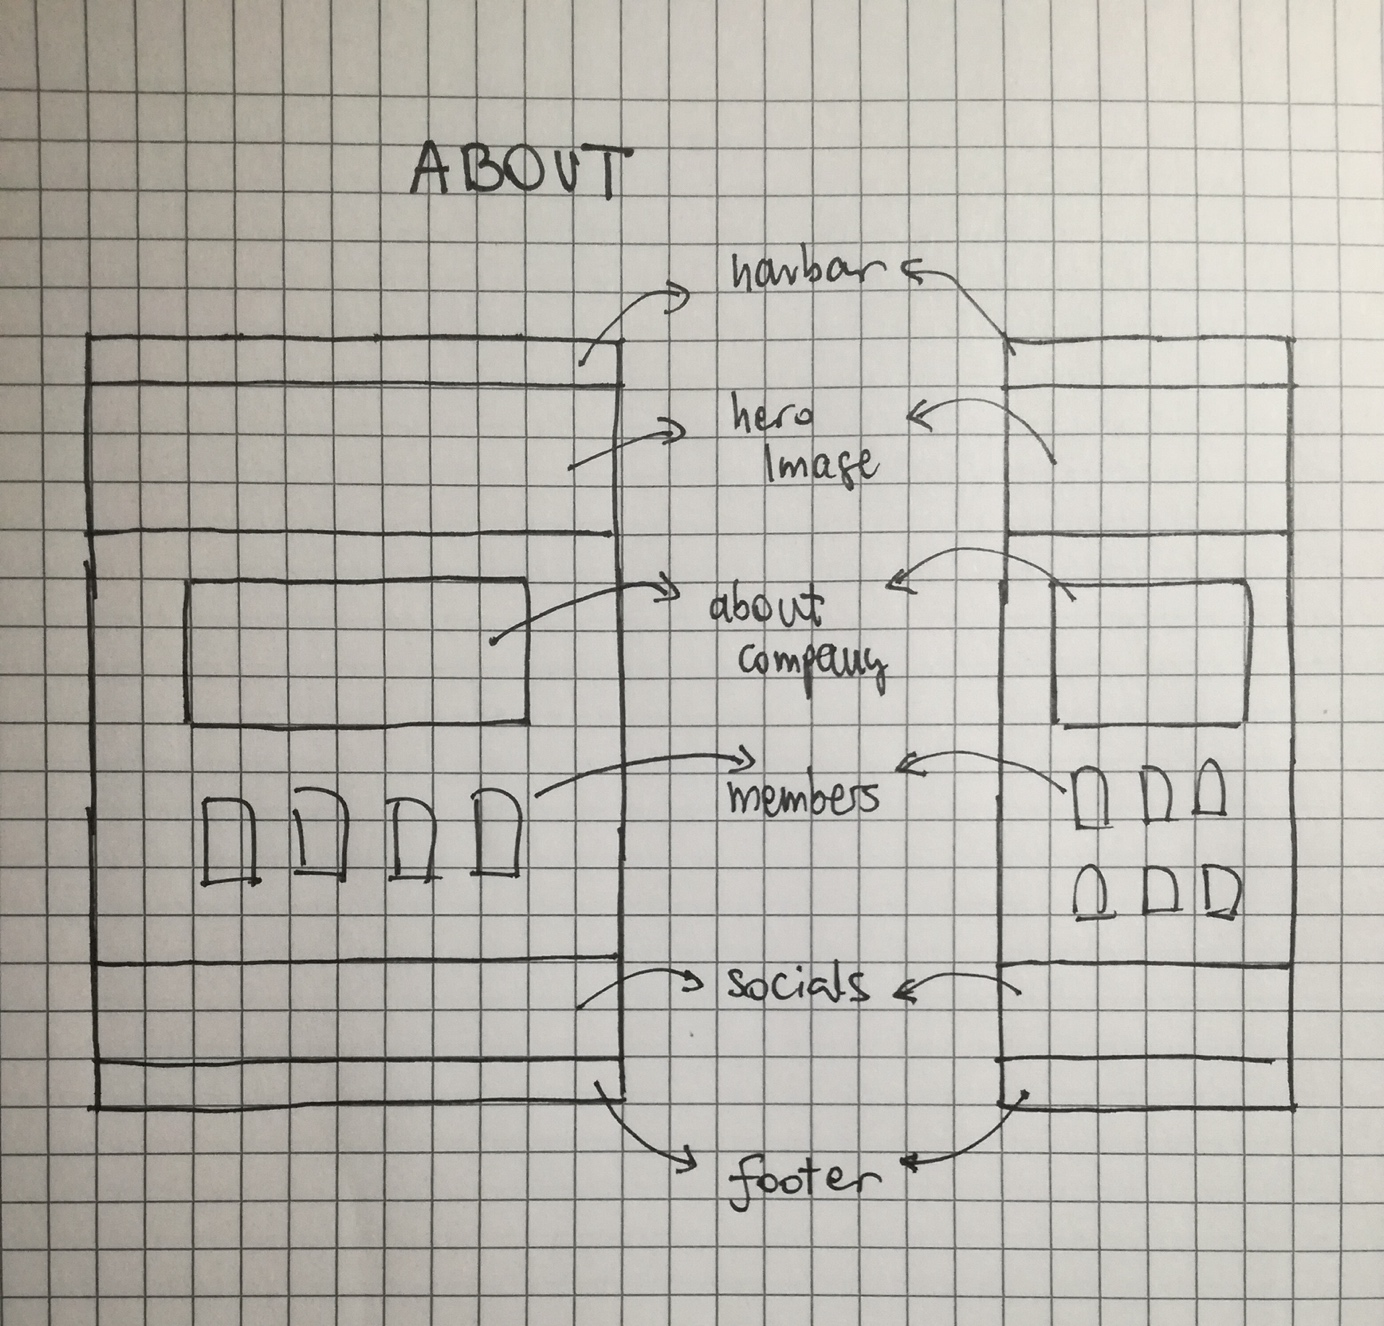 ABOUT
navbar
hero
Image
about
company
members
socials
footer